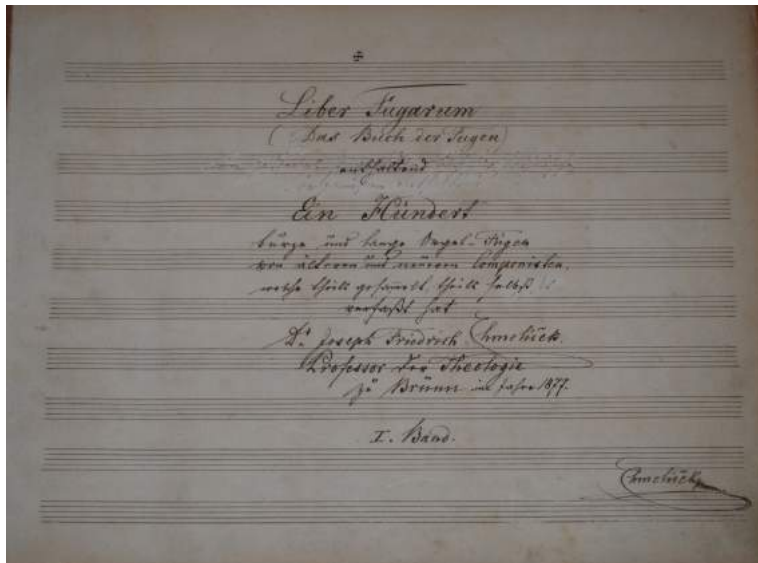 Liber Fugarum
(Das Buch der Fugen)
enthaltend
Ein Hundert
kurze und lange Orgel-Fugen
von älteren und neueren Componisten,
welche theils gesammelt, theils selbst
verfaßt hat
Dr. Joseph Friedrich Chmelíček.
Professor der Theologie
zu Brünn im Jahre 1877.
I. Band.
Chmelíček